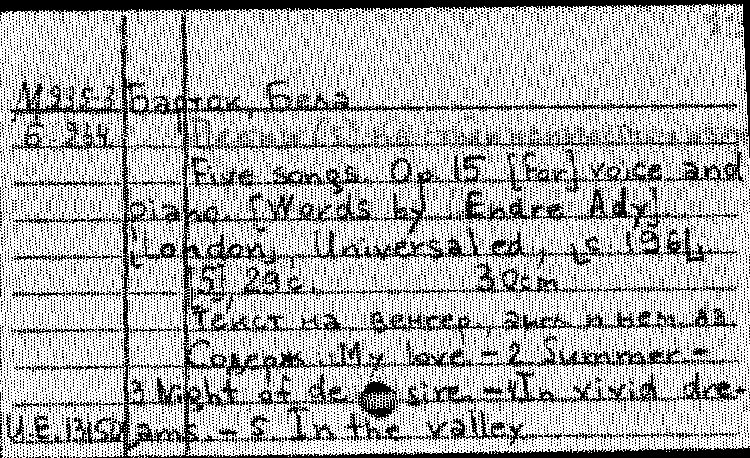 Барток, Бела
Б 334
Five songs. Op. 15 [For] voice and
piano. [Words by Endre Ady]
[London], Universal ed, [c. 1961].
[5], 29 с. 30 cm
Текст на венгер., англ и нем. яз.
Содерж.: My love. - 2 Summer -
3 Night of desire. - 4 In vivid dre-
ams. - 5. In the valley